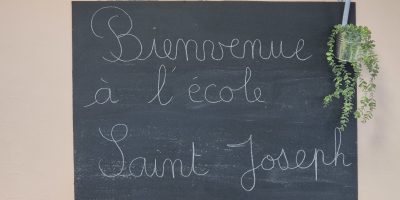 Bienvenue
à l'école
Saint Joseph